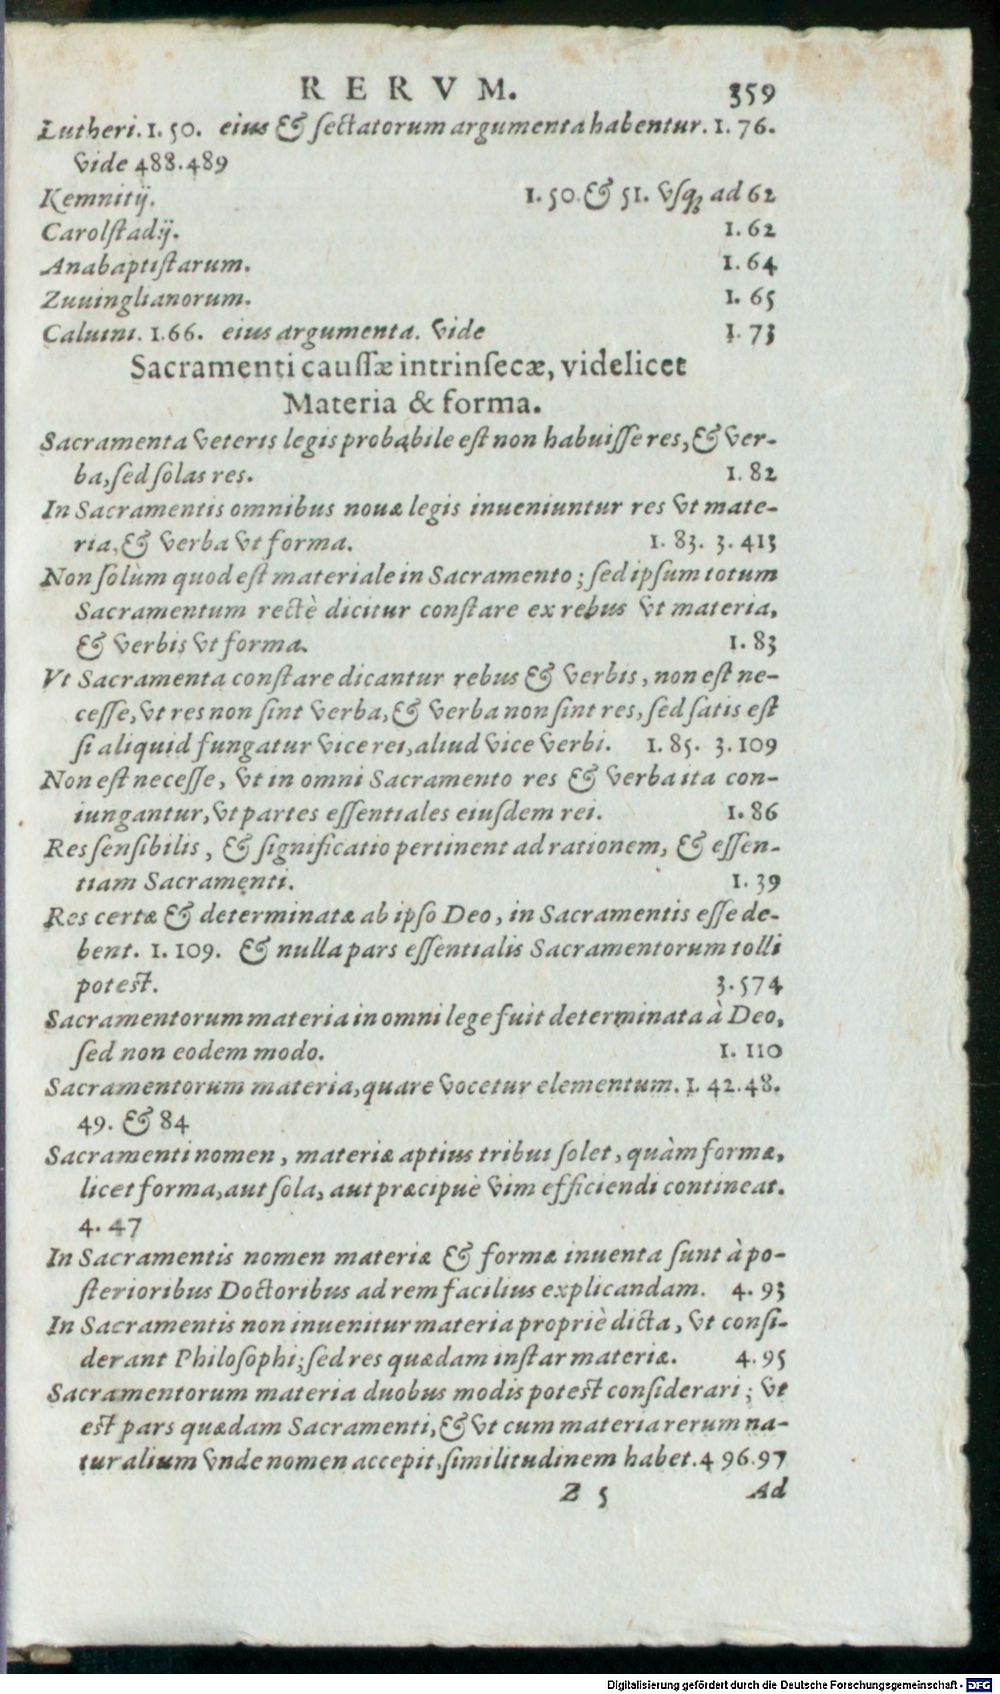 RERVM. 359
Lutheri. 1. 50. eius & sectatorum argumenta habentur. 1. 76.
vide 488.489
Kemnitij. 1. 50. & 51. vsq; ad 62
Carolstadij. 1. 62
Anabaptistarum. 1. 64
Zuuinglianorum. 1. 65
Caluini. 1.66. eius argumenta. vide 1. 73
Sacramenti caussæ intrinsecæ, videlicet
Materia & forma.
Sacramenta veteris legis probabile est non habuisse res, & ver-
ba, sed solas res. 1. 82
In Sacramentis omnibus nouæ legis inueniuntur res vt mate-
ria, & verba vt forma. 1. 83. 3. 413
Non solùm quod est materiale in Sacramento; sed ipsum totum
Sacramentum rectè dicitur constare ex rebus vt materia,
& verbis vt forma. 1. 83
Vt Sacramenta constare dicantur rebus & verbis, non est ne-
cesse, vt res non sint verba, & verba non sint res, sed satis est
si aliquid fungatur vice rei, aliud vice verbi. 1. 85. 3. 109
Non est necesse, vt in omni Sacramento res & verba ita con-
iungantur, vt partes essentiales eiusdem rei. 1. 86
Res sensibilis, & significatio pertinent ad rationem, & essen-
tiam Sacramenti. 1. 39
Res certæ & determinatæ ab ipso Deo, in Sacramentis esse de-
bent. 1. 109. & nulla pars essentialis Sacramentorum tolli
potest. 3. 574
Sacramentorum materia in omni lege fuit determinata à Deo,
sed non eodem modo. 1. 110
Sacramentorum materia, quare vocetur elementum. 1. 42. 48.
49. & 84
Sacramenti nomen, materiæ aptius tribui solet, quàm formæ,
licet forma, aut sola, aut præcipuè vim efficiendi contineat.
4. 47
In Sacramentis nomen materiæ & formæ inuenta sunt à po-
sterioribus Doctoribus ad rem facilius explicandam. 4. 93
In Sacramentis non inuenitur materia propriè dicta, vt consi-
derant Philosophi; sed res quædam instar materiæ. 4. 95
Sacramentorum materia duobus modis potest considerari; vt
est pars quædam Sacramenti, & vt cum materia rerum na-
turalium vnde nomen accepit, similitudinem habet. 4 96. 97
Z 5 Ad
Digitalisierung gefördert durch die Deutsche Forschungsgemeinschaft - DFG